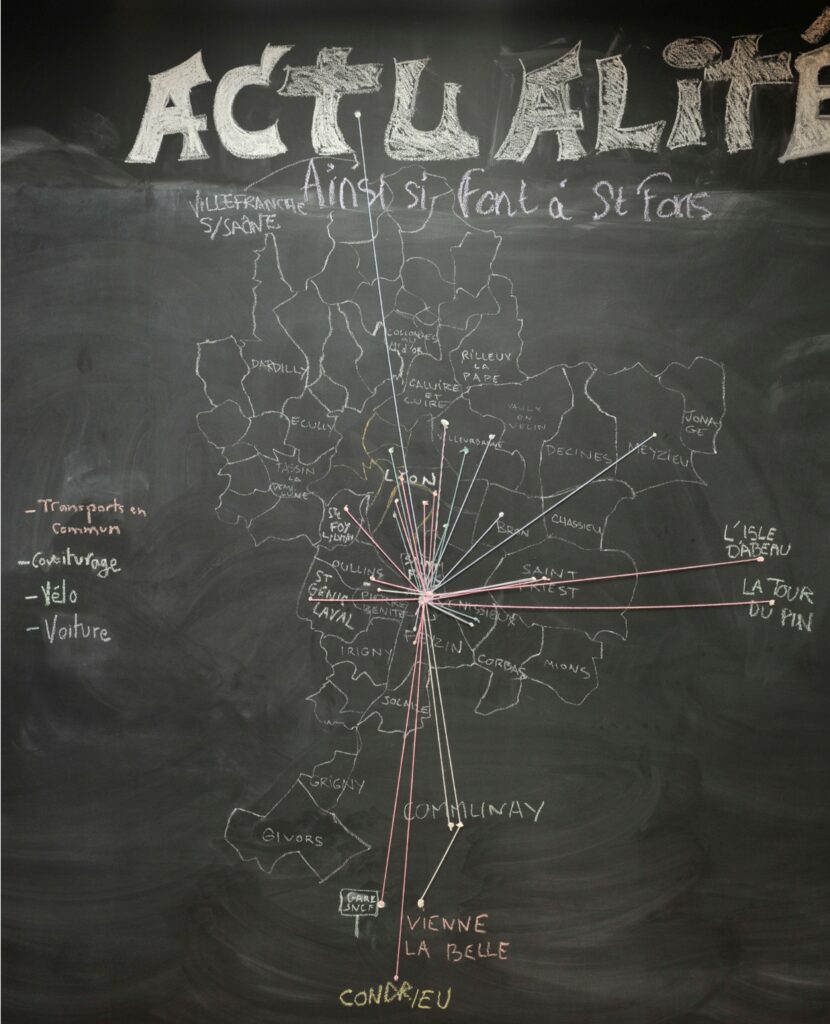 ACTUALITÉ
Ainsi si font à St Fons
VILLEFRANCHE
S/SAÔNE
COLLONGES
AU
Mt d'OR
DARDILLY
RILLEUX
LA
PAPE
CALUIRE
ET
CUIRE
ECULLY
VAULX
EN
VELIN
JONAGE
VILLEURBANNE
DECINES
MEYZIEU
TASSIN
LA
DEMI
LUNE
LYON
STE
FOY
LYON
BRON
CHASSIEU
- Transports en
Commun
- Covoiturage
- Vélo
- Voiture
L'ISLE
D'ABEAU
OULLINS
SAINT
PRIEST
ST
GENIS
LAVAL
PIERRE
BENITE
VENISSIEUX
LA TOUR
DU PIN
IRIGNY
FEYZIN
CORBAS
MIONS
SOLAIZE
GRIGNY
COMMUNAY
GIVORS
GARE
SNCF
VIENNE
LA BELLE
CONDRIEU